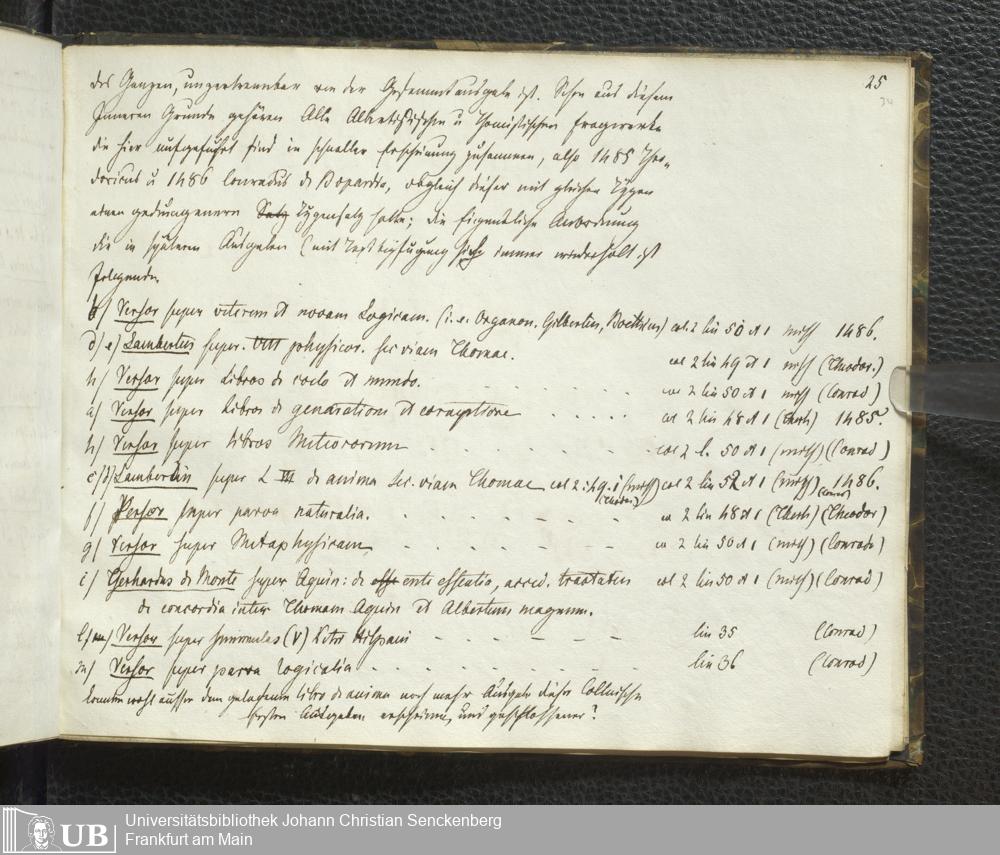 25
des Ganzen, unzertrennbar von der Gesammtausgabe ist. Schon aus diesem
Inneren Grunde gehören Alle Albertistischen u Thomistischen Fragwerke
die hier aufgeführt sind in schneller Erscheinung zusammen, also 1485 Theo„
doricus u 1486 Conradus de Bopardia, obgleich dieser mit gleichen Typen
einen gedrungenern Satz Typensatz hatte; die eigentliche Anordnung
die in spätern Ausgaben (mit Textbeifügung sich immer wiederholt ist
folgende.
b) Versor super veterem et novam Logicam. (i. e. Organon. Gilbertus, Boethius) col. 2 lin 50 et 1 1486.
d) e) Lambertus super. VIII phÿsicor. sec viam Thomae. col 2 lin 49 et 1 (Theodor.)
h) Versor super Libros de coelo et mundo. col 2 lin 50 et 1 (Conrad)
a) Versor super Libros de generatione et coruptione col 2 lin 48 et 1 1485.
h) Versor super libros Meteororum col 2 l. 50 et 1 (Conrad)
c) d) Lambertus super L III de anima sec. viam Thomae col 2 lin 52 et 1 1486.
f) Versor super parva naturalia. col 2 lin 48 et 1 (Theodor)
g) Versor super Metaphysicam col 2 lin 50 et 1 (Conrado)
i) Gerhardus de Monte super Aquin: de ente essentia, tractatus col 2 lin 50 et 1 (Conrad)
de concordia inter Thomam Aquin et Albertum magnum.
l) Versor super summulas (V) Petri Hispani lin 35 (Conrad)
m) Versor super parva logicalia lin 36 (Conrad)
konnte wohl ausser dem geladenem libro de anima noch mehr Ausgabe dieser Collnischen
ersten Ausgaben erscheinen, und geschlossener?
UB Universitätsbibliothek Johann Christian Senckenberg
Frankfurt am Main